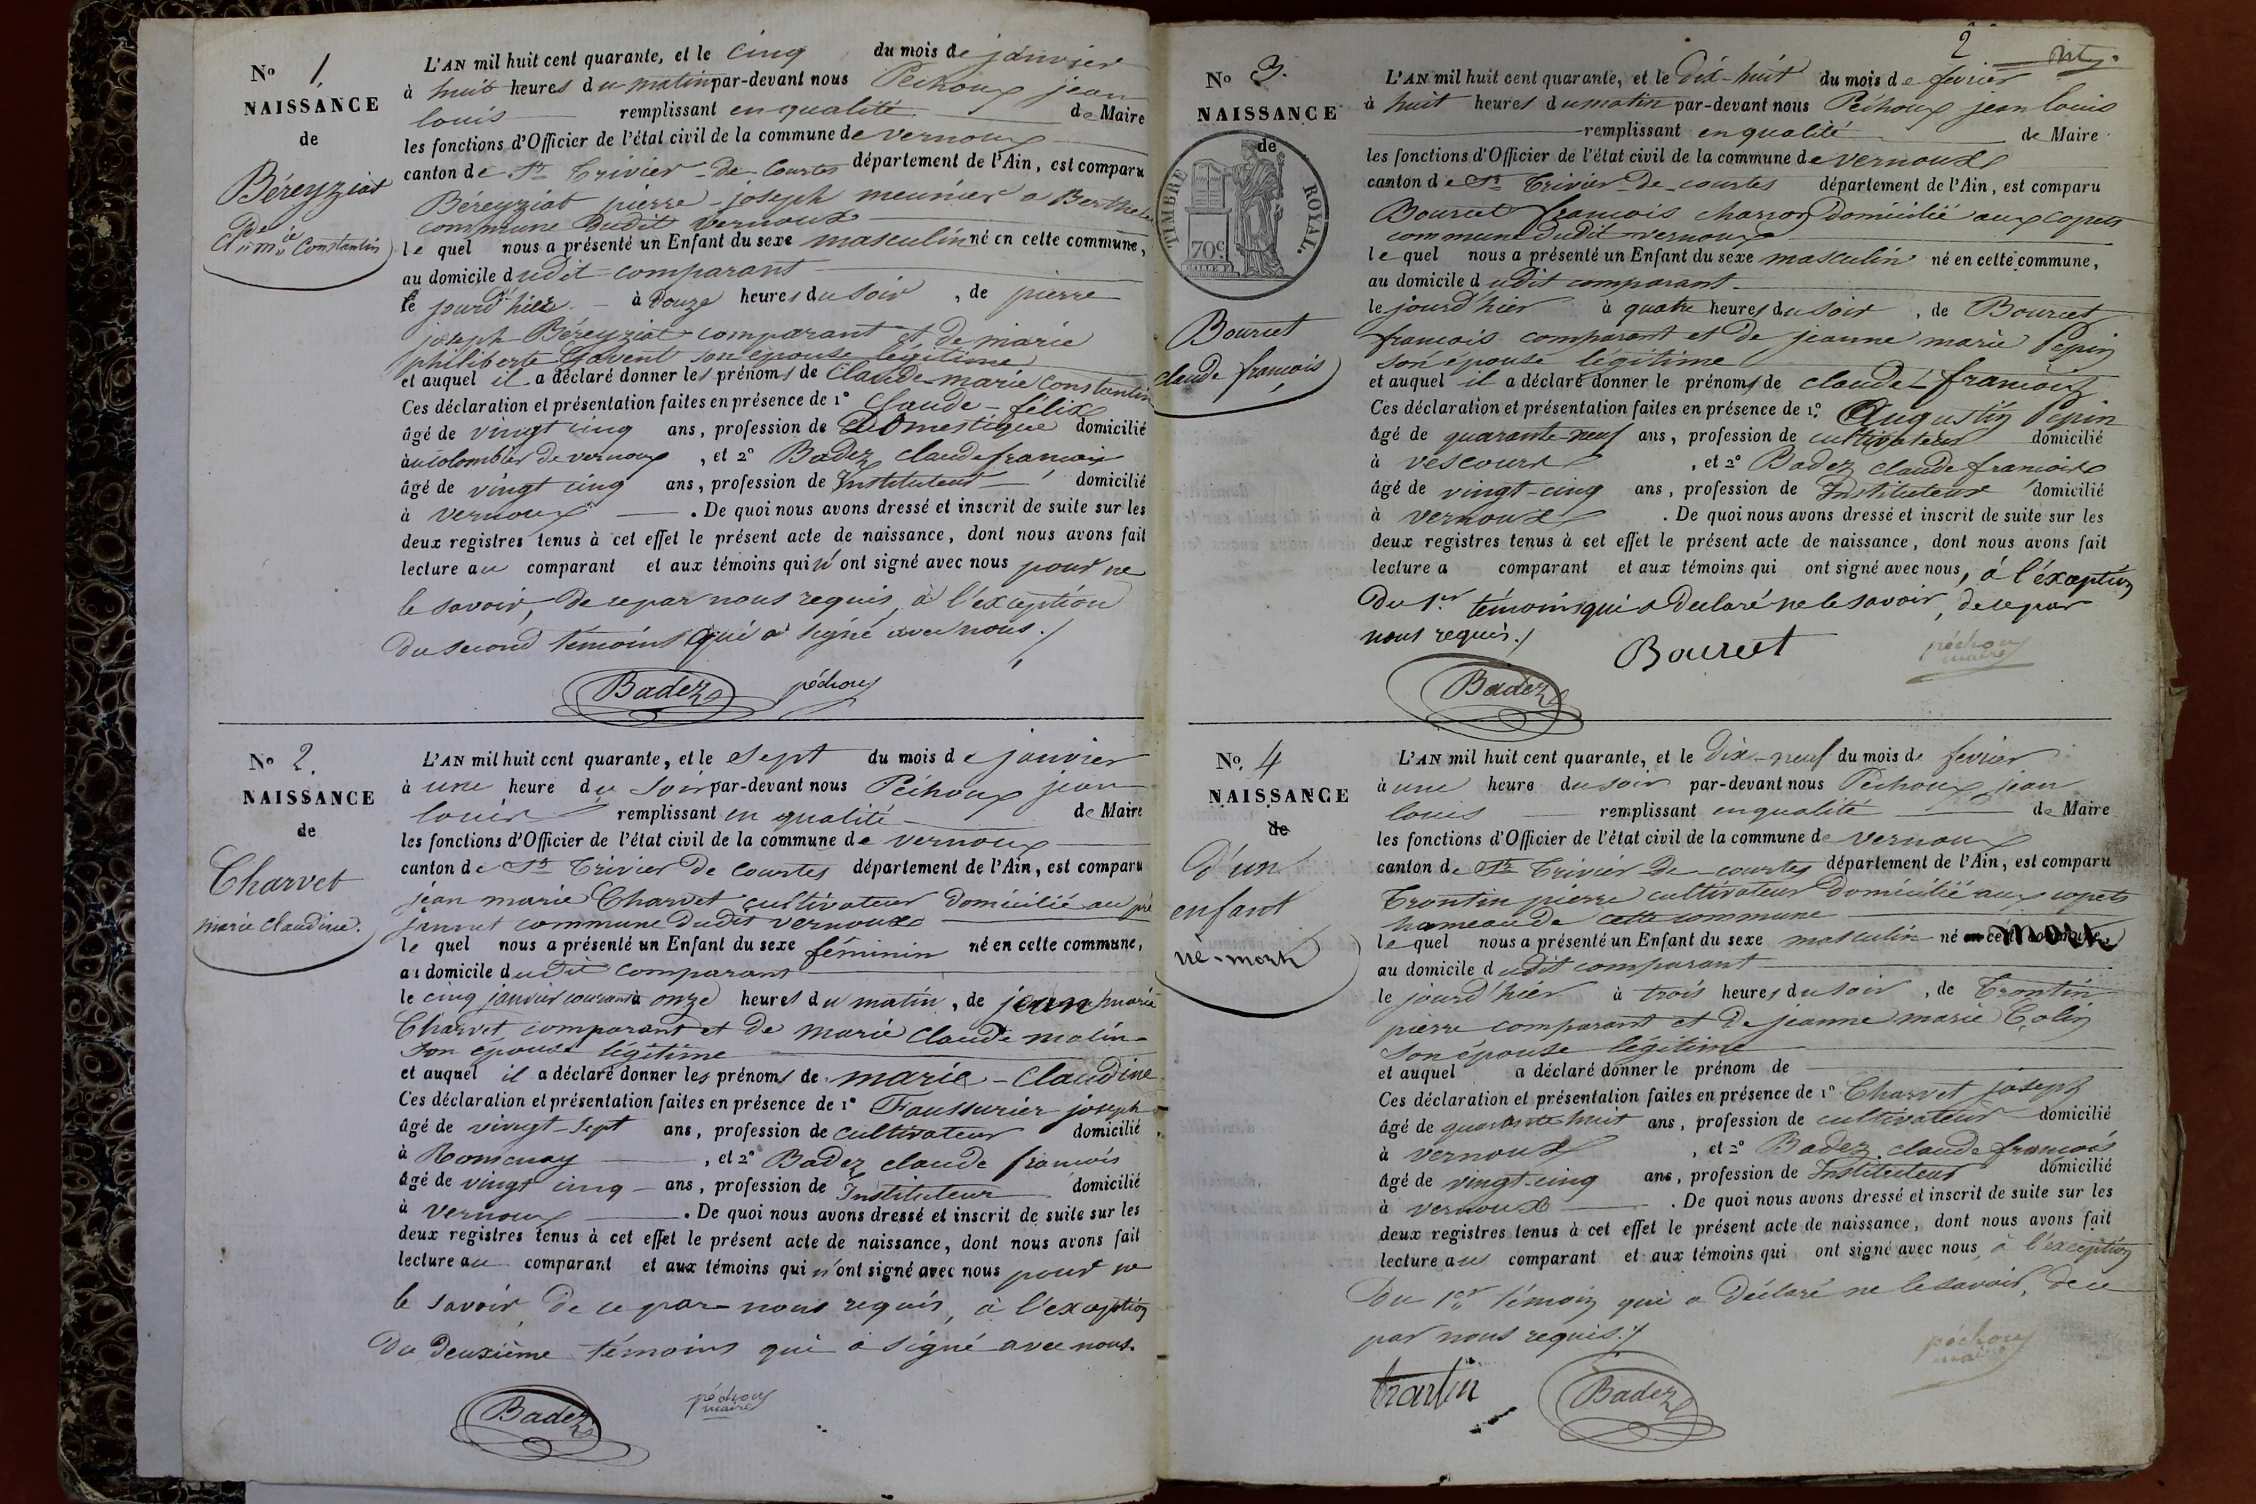 N° 1.
NAISSANCE
de
Béreyziat
Cl. de m. ie Constantin
L'AN mil huit cent quarante, et le cinq du mois de janvier
à huit heures du matin par-devant nous Péchoux jean
louis remplissant en qualité de Maire
les fonctions d'Officier de l'état civil de la commune de vernoux
canton de St Trivier-de-Courtes département de l'Ain, est comparu
Béreyziat pierre-joseph meunier a
commune dudit vernoux
le quel nous a présenté un Enfant du sexe masculin né en cette commune,
au domicile dudit comparant
le jourd'hier à douze heures du soir, de pierre
joseph Béreyziat comparant et de marie
philiberte son épouse légitime
et auquel il a déclaré donner les prénoms de Claude-marie Constantin
Ces déclaration et présentation faites en présence de 1° Claude-félix
âgé de vingt cinq ans, profession de Domestique domicilié
au colombier de vernoux, et 2° Badez claude francois
âgé de vingt cinq ans, profession de Instituteur domicilié
à vernoux. De quoi nous avons dressé et inscrit de suite sur les
deux registres tenus à cet effet le présent acte de naissance, dont nous avons fait
lecture au comparant et aux témoins qui n'ont signé avec nous pour ne
le savoir, de ce par nous requis, à l'exception
du second témoins qui a signé avec nous./
Badez péchoux
N° 2.
NAISSANCE
de
Charvet
marie claudine.
L'AN mil huit cent quarante, et le sept du mois de janvier
à une heure du soir par-devant nous Péchoux jean
louis remplissant en qualité de Maire
les fonctions d'Officier de l'état civil de la commune de vernoux
canton de St Trivier de Courtes département de l'Ain, est comparu
jean marie Charvet cultivateur domicilié au pré
commune dudit vernoux
le quel nous a présenté un Enfant du sexe féminin né en cette commune,
au domicile dudit comparant
le cinq janvier courant à onze heures du matin, de jean marie
Charvet comparant et de marie claude molin
son épouse légitime
et auquel il a déclaré donner les prénoms de marie-Claudine
Ces déclaration et présentation faites en présence de 1° Faussurier joseph
âgé de vingt-sept ans, profession de cultivateur domicilié
à Romenay, et 2° Badez claude francois
âgé de vingt cinq ans, profession de Instituteur domicilié
à vernoux. De quoi nous avons dressé et inscrit de suite sur les
deux registres tenus à cet effet le présent acte de naissance, dont nous avons fait
lecture au comparant et aux témoins qui n'ont signé avec nous pour ne
le savoir de ce par nous requis, à l'exception
du deuxième témoins qui a signé avec nous.
Badez péchoux
maire
2
N° 3.
NAISSANCE
de
TIMBRE ROYAL.
70c
Bourcet
claude françois
L'AN mil huit cent quarante, et le dix-huit du mois de fevrier
à huit heures du matin par-devant nous Péchoux jean louis
remplissant en qualité de Maire
les fonctions d'Officier de l'état civil de la commune de vernoux
canton de St Trivier-de-courtes département de l'Ain, est comparu
Bourcet francois charron domicilié aux copets
commune dudit vernoux
le quel nous a présenté un Enfant du sexe masculin né en cette commune,
au domicile dudit comparant
le jourd'hier à quatre heures du soir, de Bourcet
francois comparant et de jeanne marie Pépin
son épouse légitime
et auquel il a déclaré donner le prénoms de claude-francois
Ces déclaration et présentation faites en présence de 1° Augustin Pépin
âgé de quarante-neuf ans, profession de cultivateur domicilié
à vescours, et 2° Badez claude francois
âgé de vingt-cinq ans, profession de Instituteur domicilié
à vernoux. De quoi nous avons dressé et inscrit de suite sur les
deux registres tenus à cet effet le présent acte de naissance, dont nous avons fait
lecture a comparant et aux témoins qui ont signé avec nous, à l'exception
du 1er témoins qui a déclaré ne le savoir, de ce par
nous requis./
Bourcet péchoux
maire
Badez
N°. 4
NAISSANCE
de
d'un
enfant
né-mort
L'AN mil huit cent quarante, et le dix-neuf du mois de fevrier
à une heure du soir par-devant nous Péchoux jean
louis remplissant en qualité de Maire
les fonctions d'Officier de l'état civil de la commune de vernoux
canton de St Trivier-de-courtes département de l'Ain, est comparu
Trontin pierre cultivateur domicilié aux copets
hameau de cette commune
le quel nous a présenté un Enfant du sexe masculin né en cette commune, mort
au domicile dudit comparant
le jourd'hier à trois heures du soir, de Trontin
pierre comparant et de jeanne marie Colin
son épouse légitime
et auquel a déclaré donner le prénom de
Ces déclaration et présentation faites en présence de 1° Charvet joseph
âgé de quarante huit ans, profession de cultivateur domicilié
à vernoux, et 2° Badez claude francois
âgé de vingt-cinq ans, profession de Instituteur domicilié
à vernoux. De quoi nous avons dressé et inscrit de suite sur les
deux registres tenus à cet effet le présent acte de naissance, dont nous avons fait
lecture aux comparant et aux témoins qui ont signé avec nous à l'exception
du 1er témoin qui a déclaré ne le savoir, de ce
par nous requis./
trontin Badez péchoux
maire